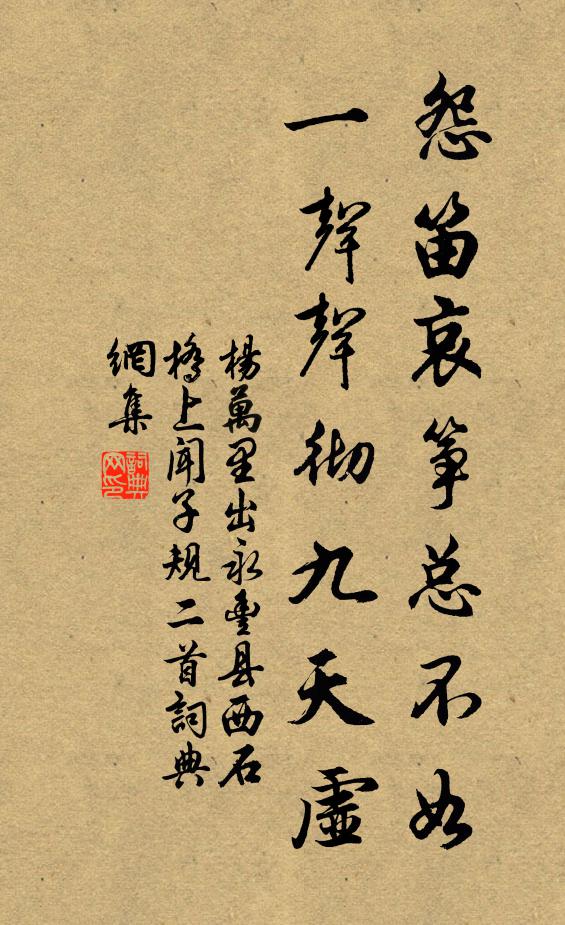 怨笛哀筝总不如
一聲聲彻九天虛
楊萬里出永豐县西石
橋上聞子規二首詞典
網集
詞典
网印